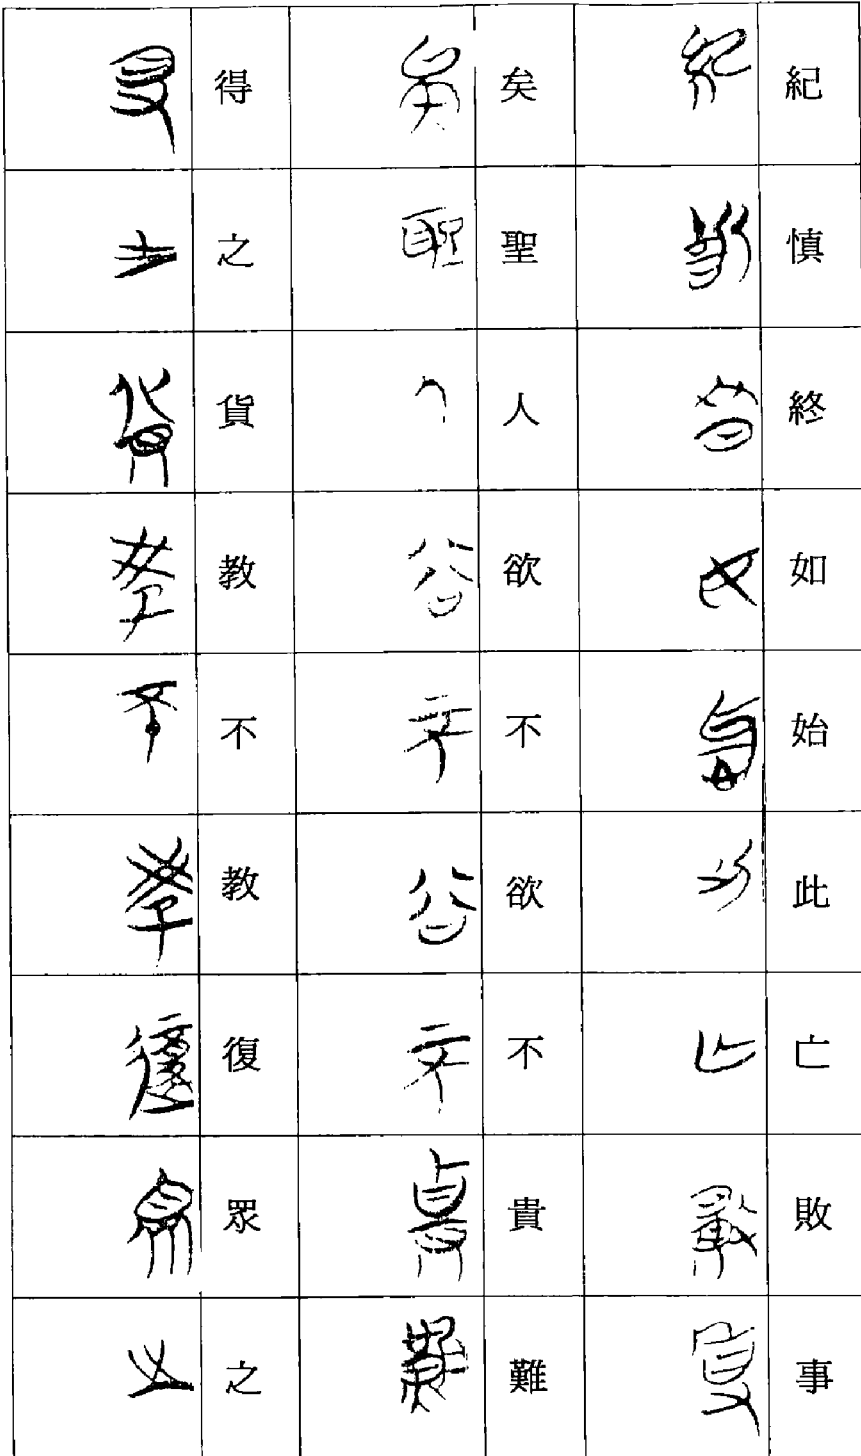 紀慎終如始此亡敗事
矣聖人欲不欲不貴難
得之貨教不教復眾之